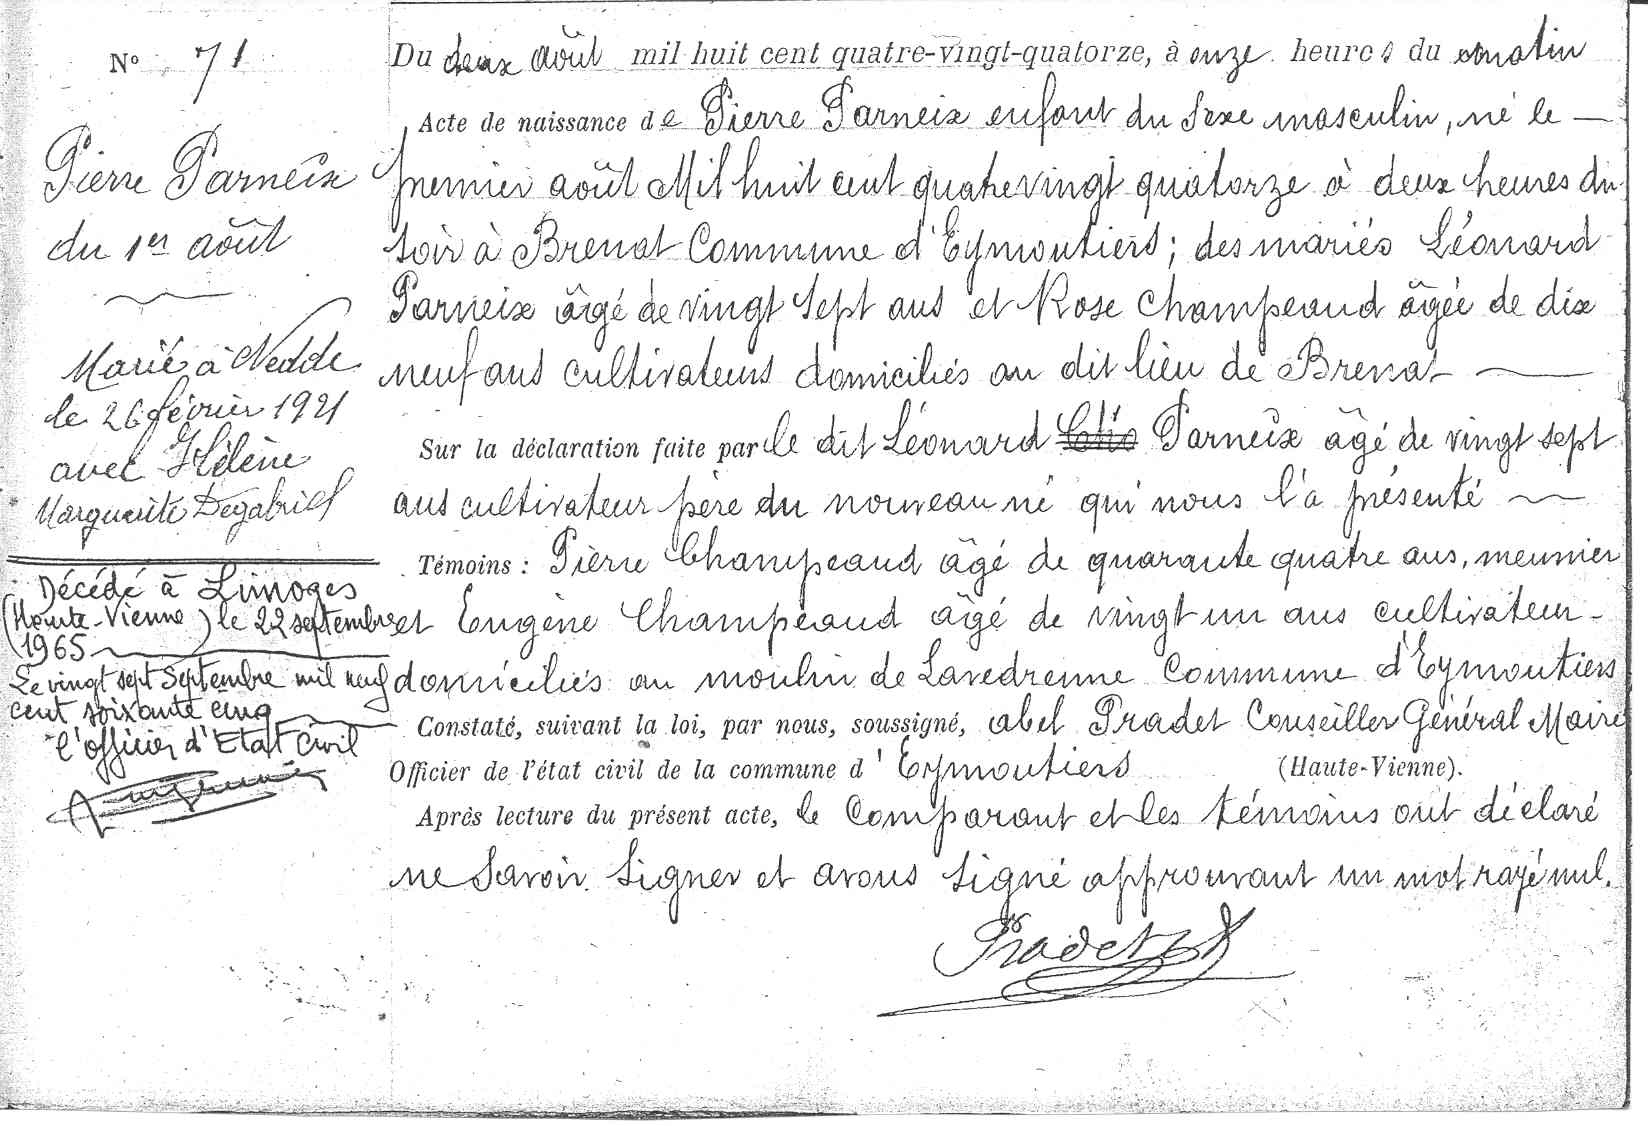 N° 71
Pierre Parneix
du 1er août
Marié à Nedde
le 26 février 1921
avec Hélène
Marguerite Degabriel
Décédé à Limoges
(Haute-Vienne) le 22 septembre
1965
Le vingt sept Septembre mil neuf
cent soixante cinq
l'officier d'Etat Civil
Du deux août mil huit cent quatre-vingt-quatorze, à onze heures du matin
Acte de naissance de Pierre Parneix enfant du Sexe masculin, né le —
premier août Mil huit cent quatre vingt quatorze à deux heures du
soir à Brenat Commune d'Eymoutiers ; des mariés Léonard
Parneix âgé de vingt sept ans et Rose Champeaud âgée de dix
neuf ans cultivateurs domiciliés au dit lieu de Brenat —
Sur la déclaration faite par le dit Léonard Parneix âgé de vingt sept
ans cultivateur père du nouveau né qui nous l'a présenté —
Témoins : Pierre Champeaud âgé de quarante quatre ans, meunier
et Eugène Champeaud âgé de vingt un ans cultivateur -
domiciliés au moulin de Lavedrenne Commune d'Eymoutiers
Constaté, suivant la loi, par nous, soussigné, abel Pradet Conseiller Général Maire
Officier de l'état civil de la commune d'Eymoutiers (Haute-Vienne).
Après lecture du présent acte, le Comparant et les témoins ont déclaré
ne Savoir Signer et avons Signé approuvant un mot rayé nul.
Pradet